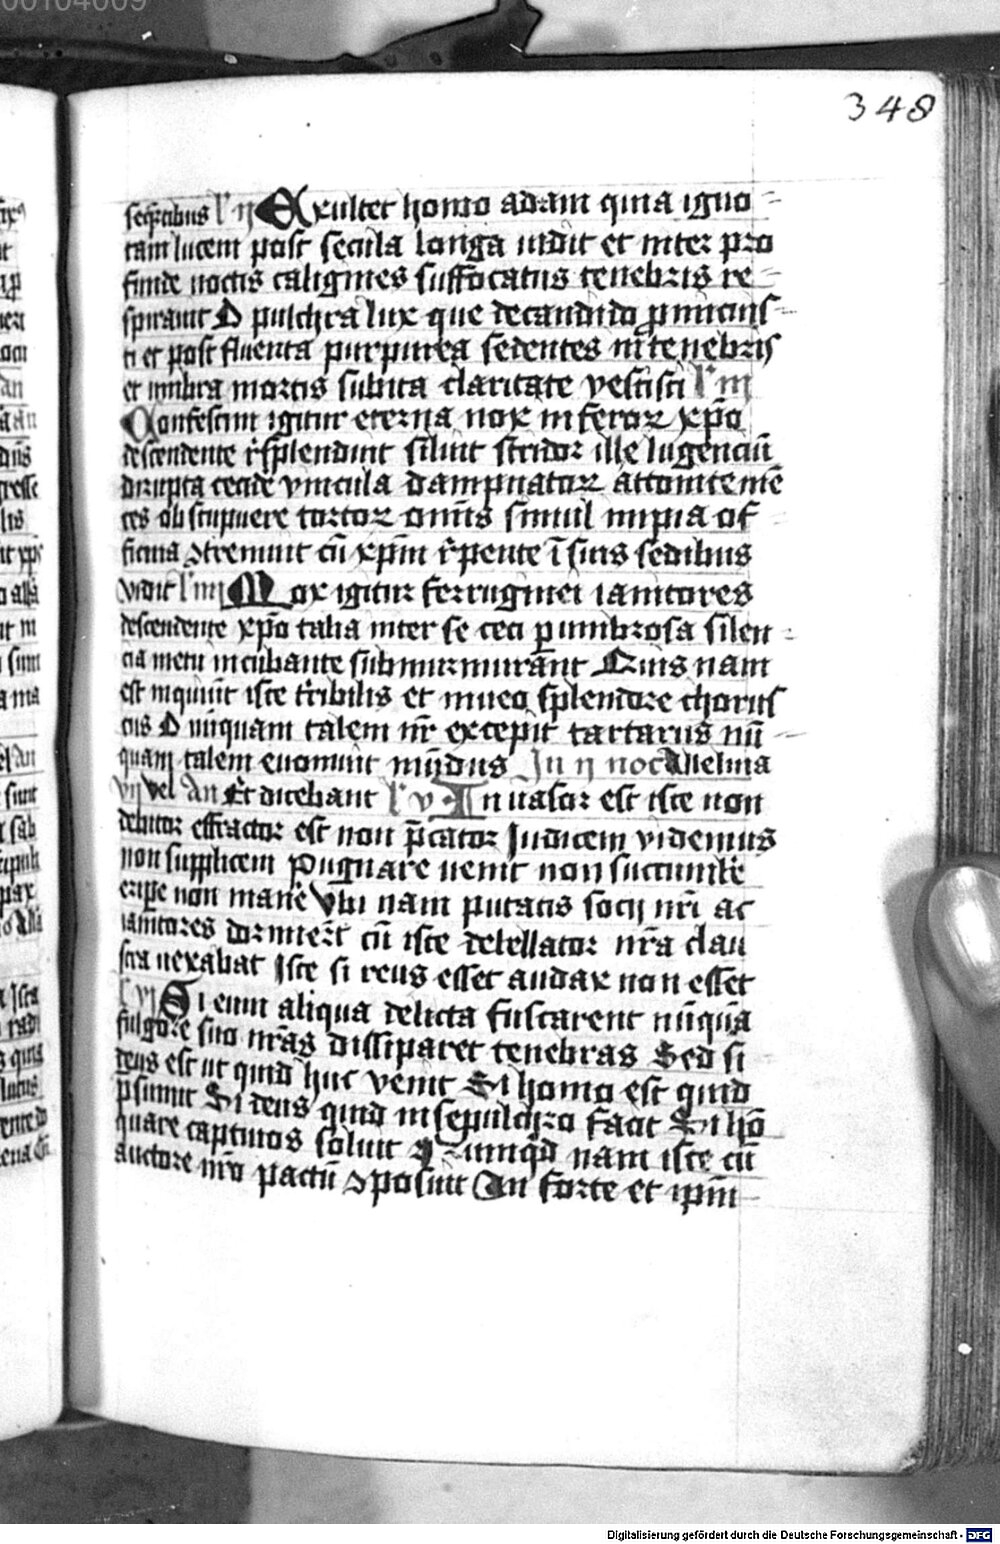 348
seqͣcibus l' ij Exultet homo adam quia igno-
tam lucem post secula longa uidit et inter pro
funde noctis caligines suffocatus tenebris re-
spirauit O pulchra lux que de candido ꝑ
ti et post fluenta purpurea sedentes in tenebris
et umbra mortis subita claritate vestisti l' iij
Confestim igitur eterna nox inferoꝝ xp̄o
descendente r̄splenduit siluit stridor ille lugenciū
dirupta cecidē vincula dampnatoꝝ attonite mē
tes obstupuere tortoꝝ om̄is simul impia of-
ficina ꝯtremuit cū xp̄m r̄pente ī suis sedibus
vidit l' iiij Mox igitur ferruginei ianitores
descendente xp̄o talia inter se ceci ꝑ umbrosa silen-
cia metu incubante submurmurant Quis nam
est inquiūt iste t̄ribilis et niueo splendore chorus
cus O nūquam talem nr̄ excepit tartarus nū-
quam talem euomuit mūdus In ij noc
vij vel An Et dicebant l' v Inuasor est iste non
debitor effractor est non p̄cator Iudicem videmus
non supplicem Pugnare uenit non succumbe᷑
eripe᷑ non mane᷑ Vbi nam putatis socij nr̄i ac
ianitores dormier̄t cū iste debellator nr̄a clau
stra uexabat Iste si reus esset audax non esset
l' vj Si eum aliqua delicta fuscarent nūquā
fulgore suo nr̄as dissiparet tenebras Sed si
deus est ut quid huc venit Si homo est quid
p̄sumit Si deus quid in sepulchro facit Si hō
quare captiuos soluit Nunqd nam iste cū
auctore nr̄o pactū ꝯposuit An forte et ip̄m-
Digitalisierung gefördert durch die Deutsche Forschungsgemeinschaft - DFG